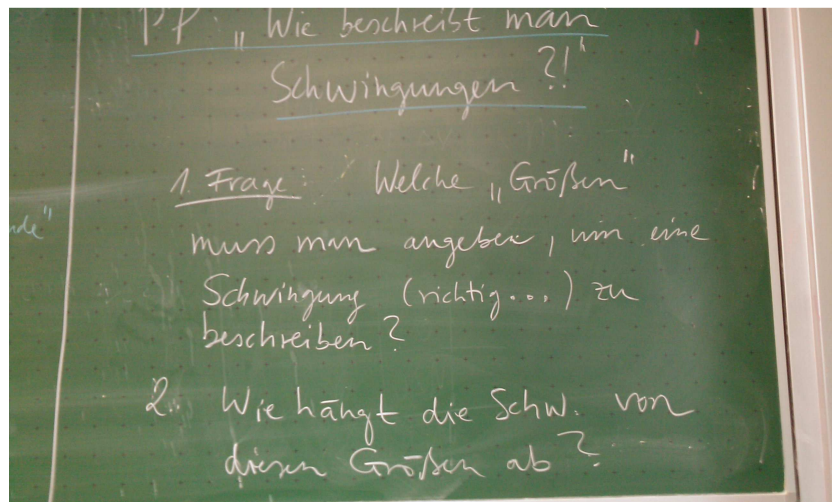 PF: „Wie beschreibt man
Schwingungen ?!"
1. Frage: Welche „Größen"
muss man angeben, um eine
Schwingung (richtig...) zu
beschreiben?
2. Wie hängt die Schw. von
diesen Größen ab?